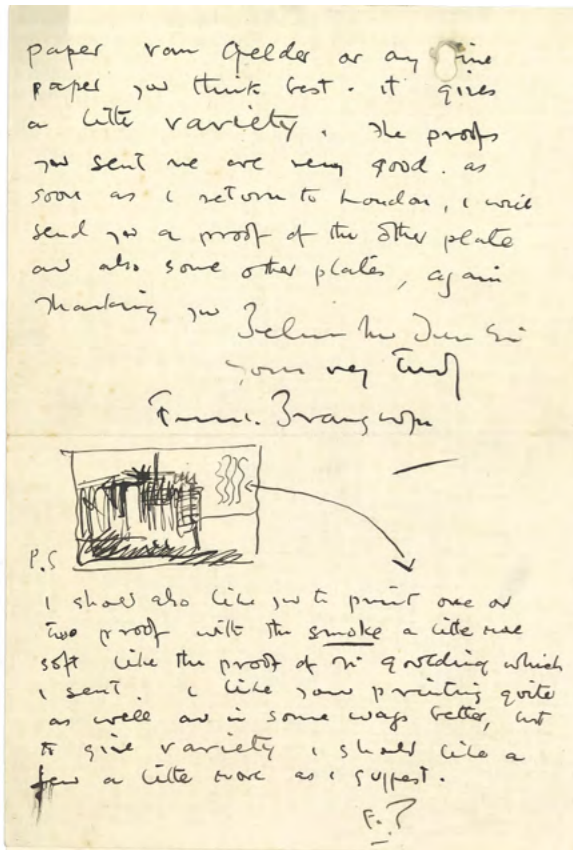 paper van Gelder or any fine
paper you think best. it gives
a little variety. The proofs
you sent me are very good. as
soon as i return to London, i will
send you a proof of the other plate
and also some other plates, again
thanking you
Believe me Dear Sir
yours very truly
Frank Brangwyn
P.S
I should also like you to print one or
two proof with the smoke a little more
soft like the proof of Mr goulding which
i sent. i like your printing quite
as well and in some ways better, but
to give variety i should like a
few a little more as i suggest.
F.